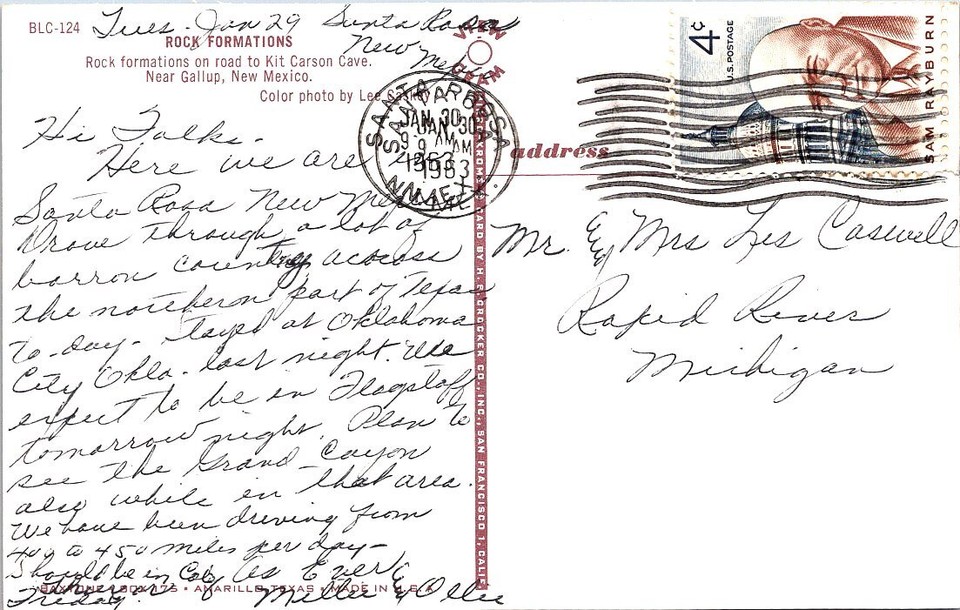 BLC-124
Tues - Jan 29 Santa Rosa
New Mex
ROCK FORMATIONS
Rock formations on road to Kit Carson Cave.
Near Gallup, New Mexico.
Color photo by Lee
Hi Folks -
Here we are
Santa Rosa New
Drove through a lot of
barron country across
the northern part of Texas
to-day - stayed at Oklahoma
City Okla. last night. We
expect to be in Flagstaff
tomorrow night. Plan to
see the Grand Cayon
also while in that area.
We have been driving from
400 to 450 miles per day -
Should be in
Friday.
As Ever
& Ollie
BOX 175 • AMARILLO, TEXAS • MADE IN U.S.A.
CARD BY H. S. CROCKER CO., INC., SAN FRANCISCO 1, CALIF.
SANTA ROSA
JAN 30
9 AM
1963
N. MEX.
address
4¢
U.S. POSTAGE
SAM RAYBURN
Mr. & Mrs Les Caswell
Rapid River
Michigan